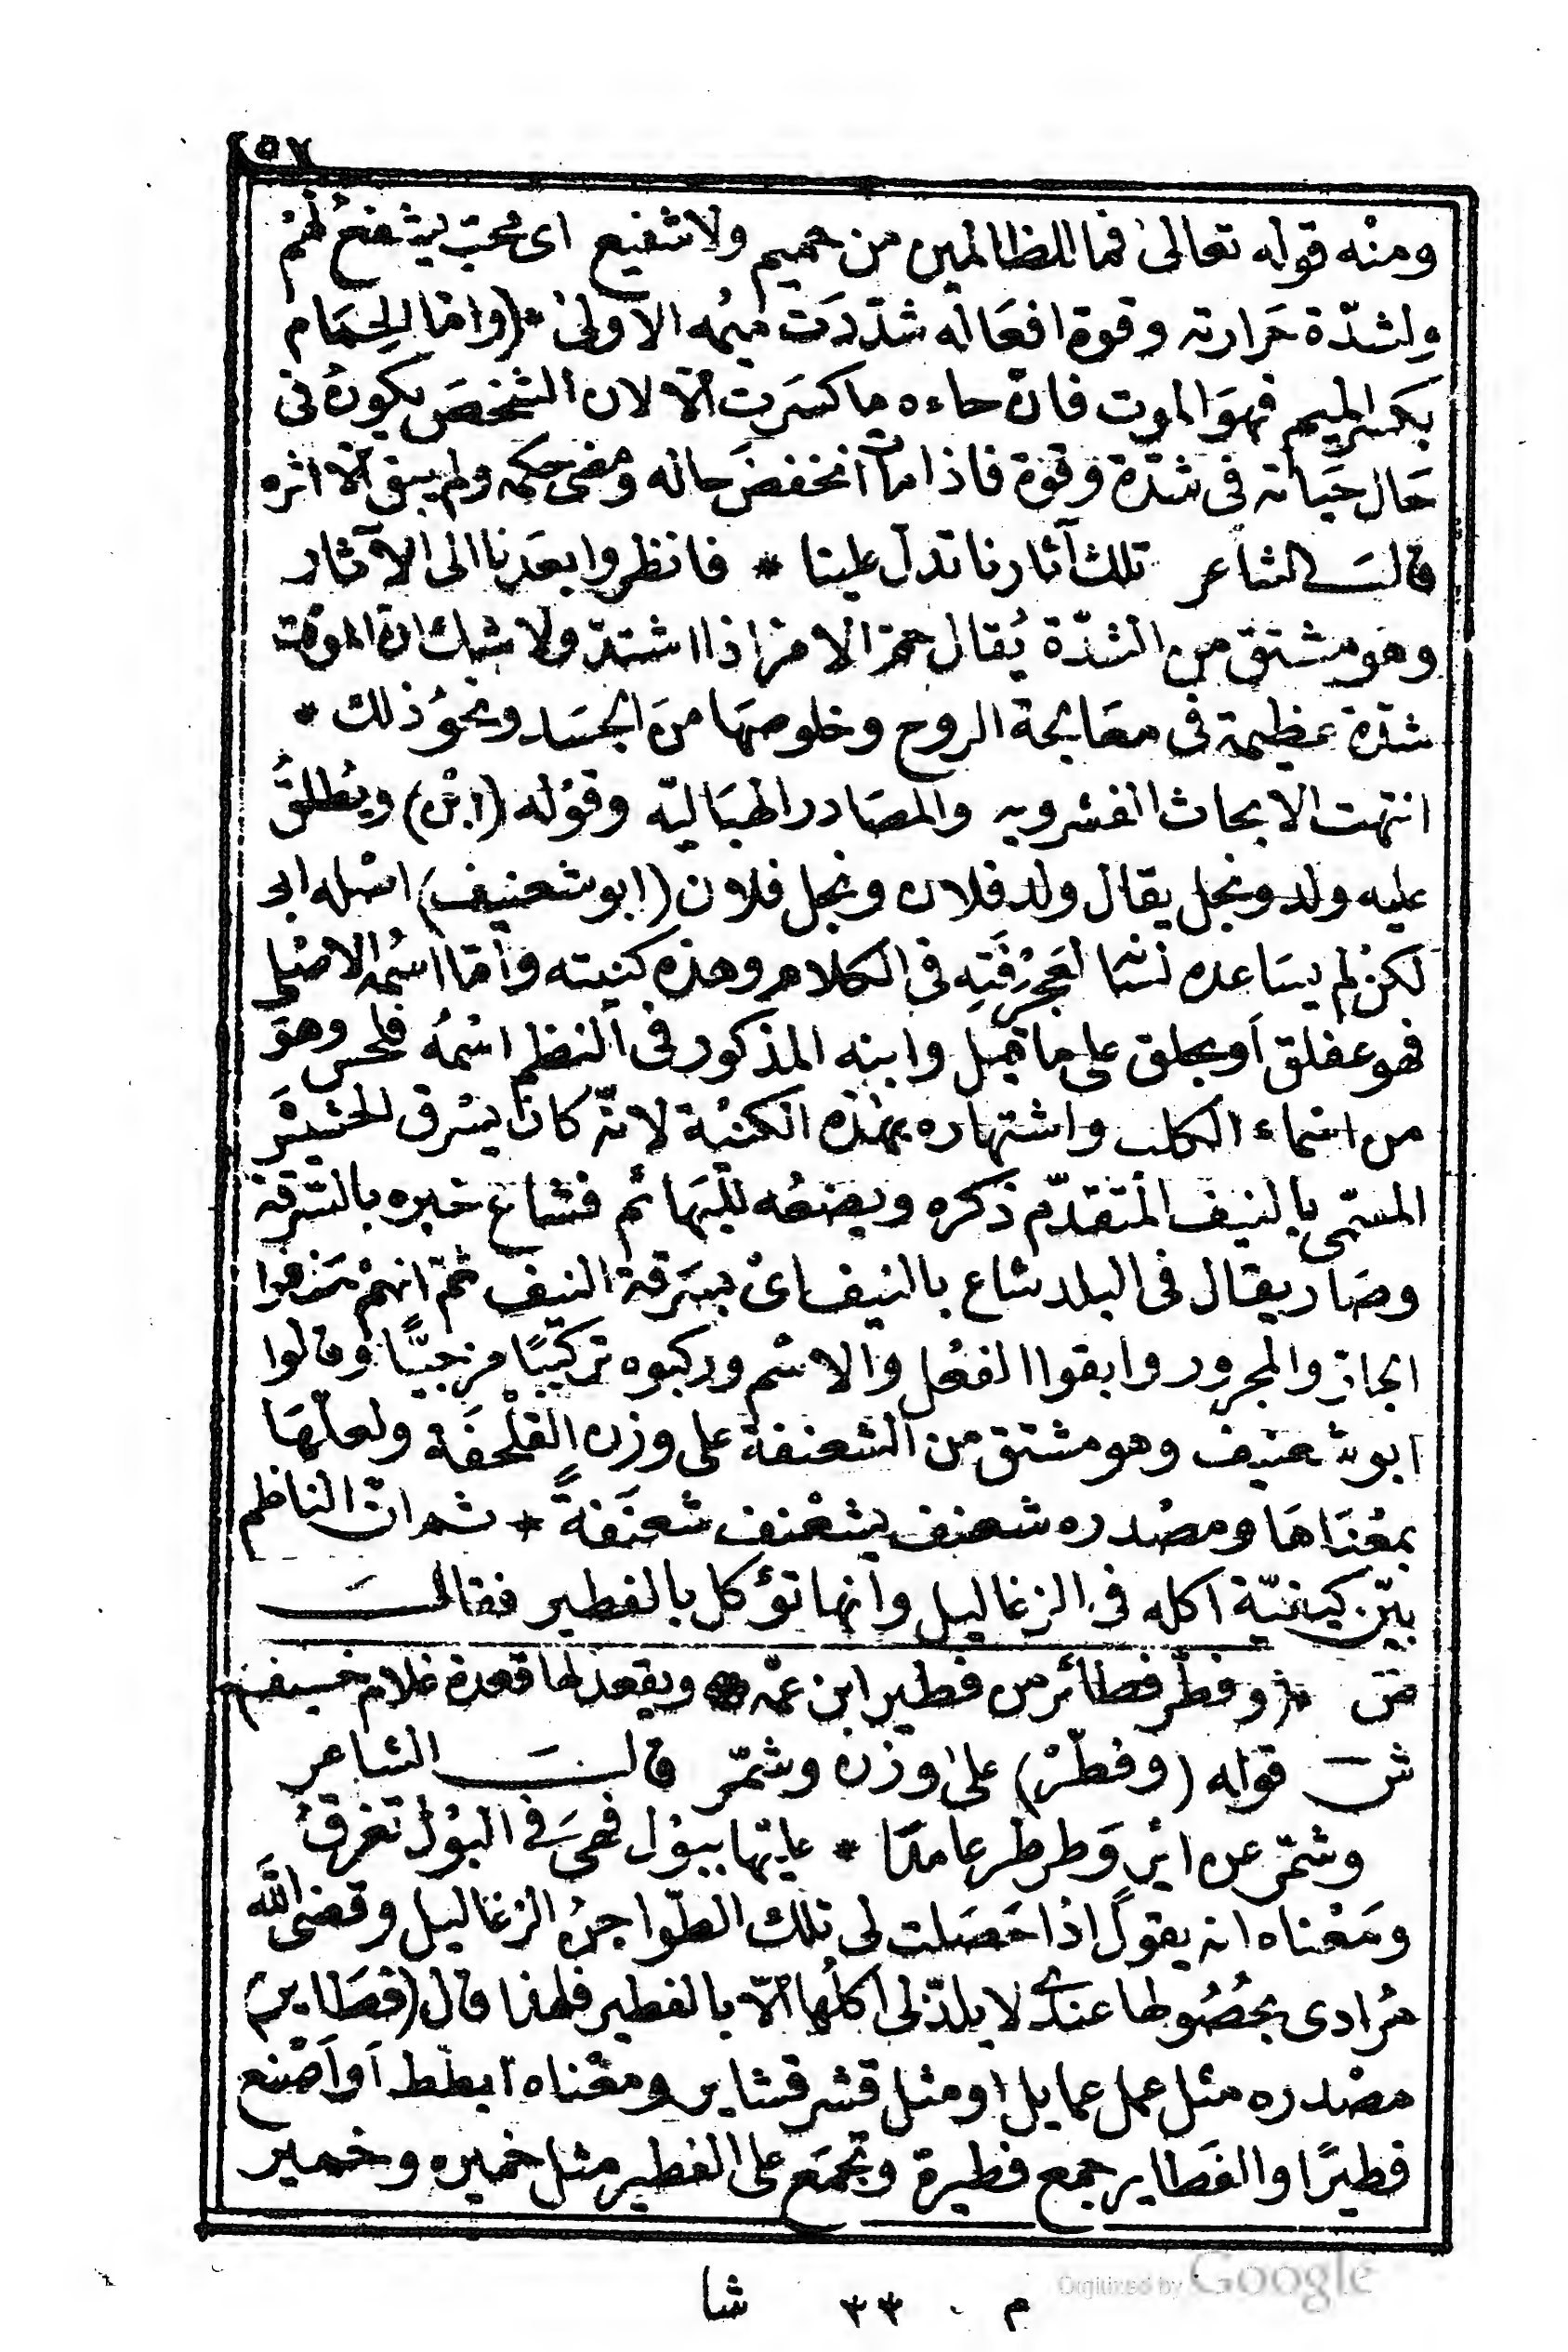 ٢٥٧
ومنْه قوله تعالى فما للظالمين من حميم ولا شفيع اى محبّ يشفعُ لهُمْ
ولشدّة حَرارته وقوة افعَاله شدّدَت ميمُه الاولىٰ * (وامّا الحِمَام
بكسر الميم فهوَ الموت فانّ حاءه ما كسَرت الّا لان الشخصَ يكونُ فى
حَال حَياته فى شدّة وقوّة فاذا مات انخفضَ حاله ومضى حكمه ولم يبق الّا اثره
قالــ الشاعر تلك آثارنا تدل علينا * فانظروا بعَدنا الى الآثار
وهو مشتق من الشدّة يُقال حمّ الامر اذا اشتدّ ولا شك انّ الموت
شدّة عظيمة فى معَالجة الروح وخلوصهَا منَ الجسَد ونحوُ ذلك *
انتهت الابحاث الفشرويه والمصَادر الهبَاليّه وقوْله (ابْن) ويُطلقُ
عليه ولد ونجل يقال ولد فلان ونجل فلان (ابو شعنيف) اصْله ابى
لكنْ لم يسَاعده لسَانه لعَجْرفَتِه فى الكلام وهذه كنيته وأمّا اسْمه الاصْلى
فهو عفلق أو بحلق على ما قيل وابنه المذكور فى النظم اسْمهُ فلحس وهوَ
من اسْماء الكلب واشتهاره بهٰذه الكنيْة لانّه كان يسْرق الحشيشَ
المسمّى بالنيف المتقدّم ذكره ويضعُه للبَهائم فشاع خبره بالسّرقة
وصَار يقال فى البلد شاع بالنيف اىْ بسَرقة النيف ثمّ انهمْ حَذفوا
الجارّ والمجرور وابقوا الفعْل والاسْم وركبوه تركيبًا مزجيًّا وقالوا
ابو شعنيف وهو مشتق من الشعنفة على وزن القَلْحفَة ولعلّهَا
بمعْنَاهَا ومصْدره شعنف يشعْنف شعنَفةً * ثم انّ الناظم
بيّن كيفيّة اكله فى الزغاليل وأنها تؤكل بالفطير فقالــَ
صَ * (وفطّر فطائر من فطير ابن عمّه * ويقعد لها قعدة غلام خسيف)
شـَ قوله (وفطّرْ) علىٰ وزن وشمّر قالــَ الشاعر
وشمّر عن ايْرٍ وَطرطر عامدًا * عليْها ببوْل فهىَ فى البوْل تغرقُ
ومَعْناه انه يقول اذا حَصَلت لى تلك الطّواجن الزغاليل وقضى اللّه
مُرادى بحُصُولها عندى لا يلذّ لى اكلُها الّا بالفطير فلهٰذا قال (فطَاير)
مصْدره مثل عمل عمايل او مثل قشر قشاير ومعْناه ابطّط أو أصْنع
فطيرًا والفَطاير جمع فطيرة وتجمَع على الفطير مثل خميره وخمير
م ٣٣ شا
Digitized by Google